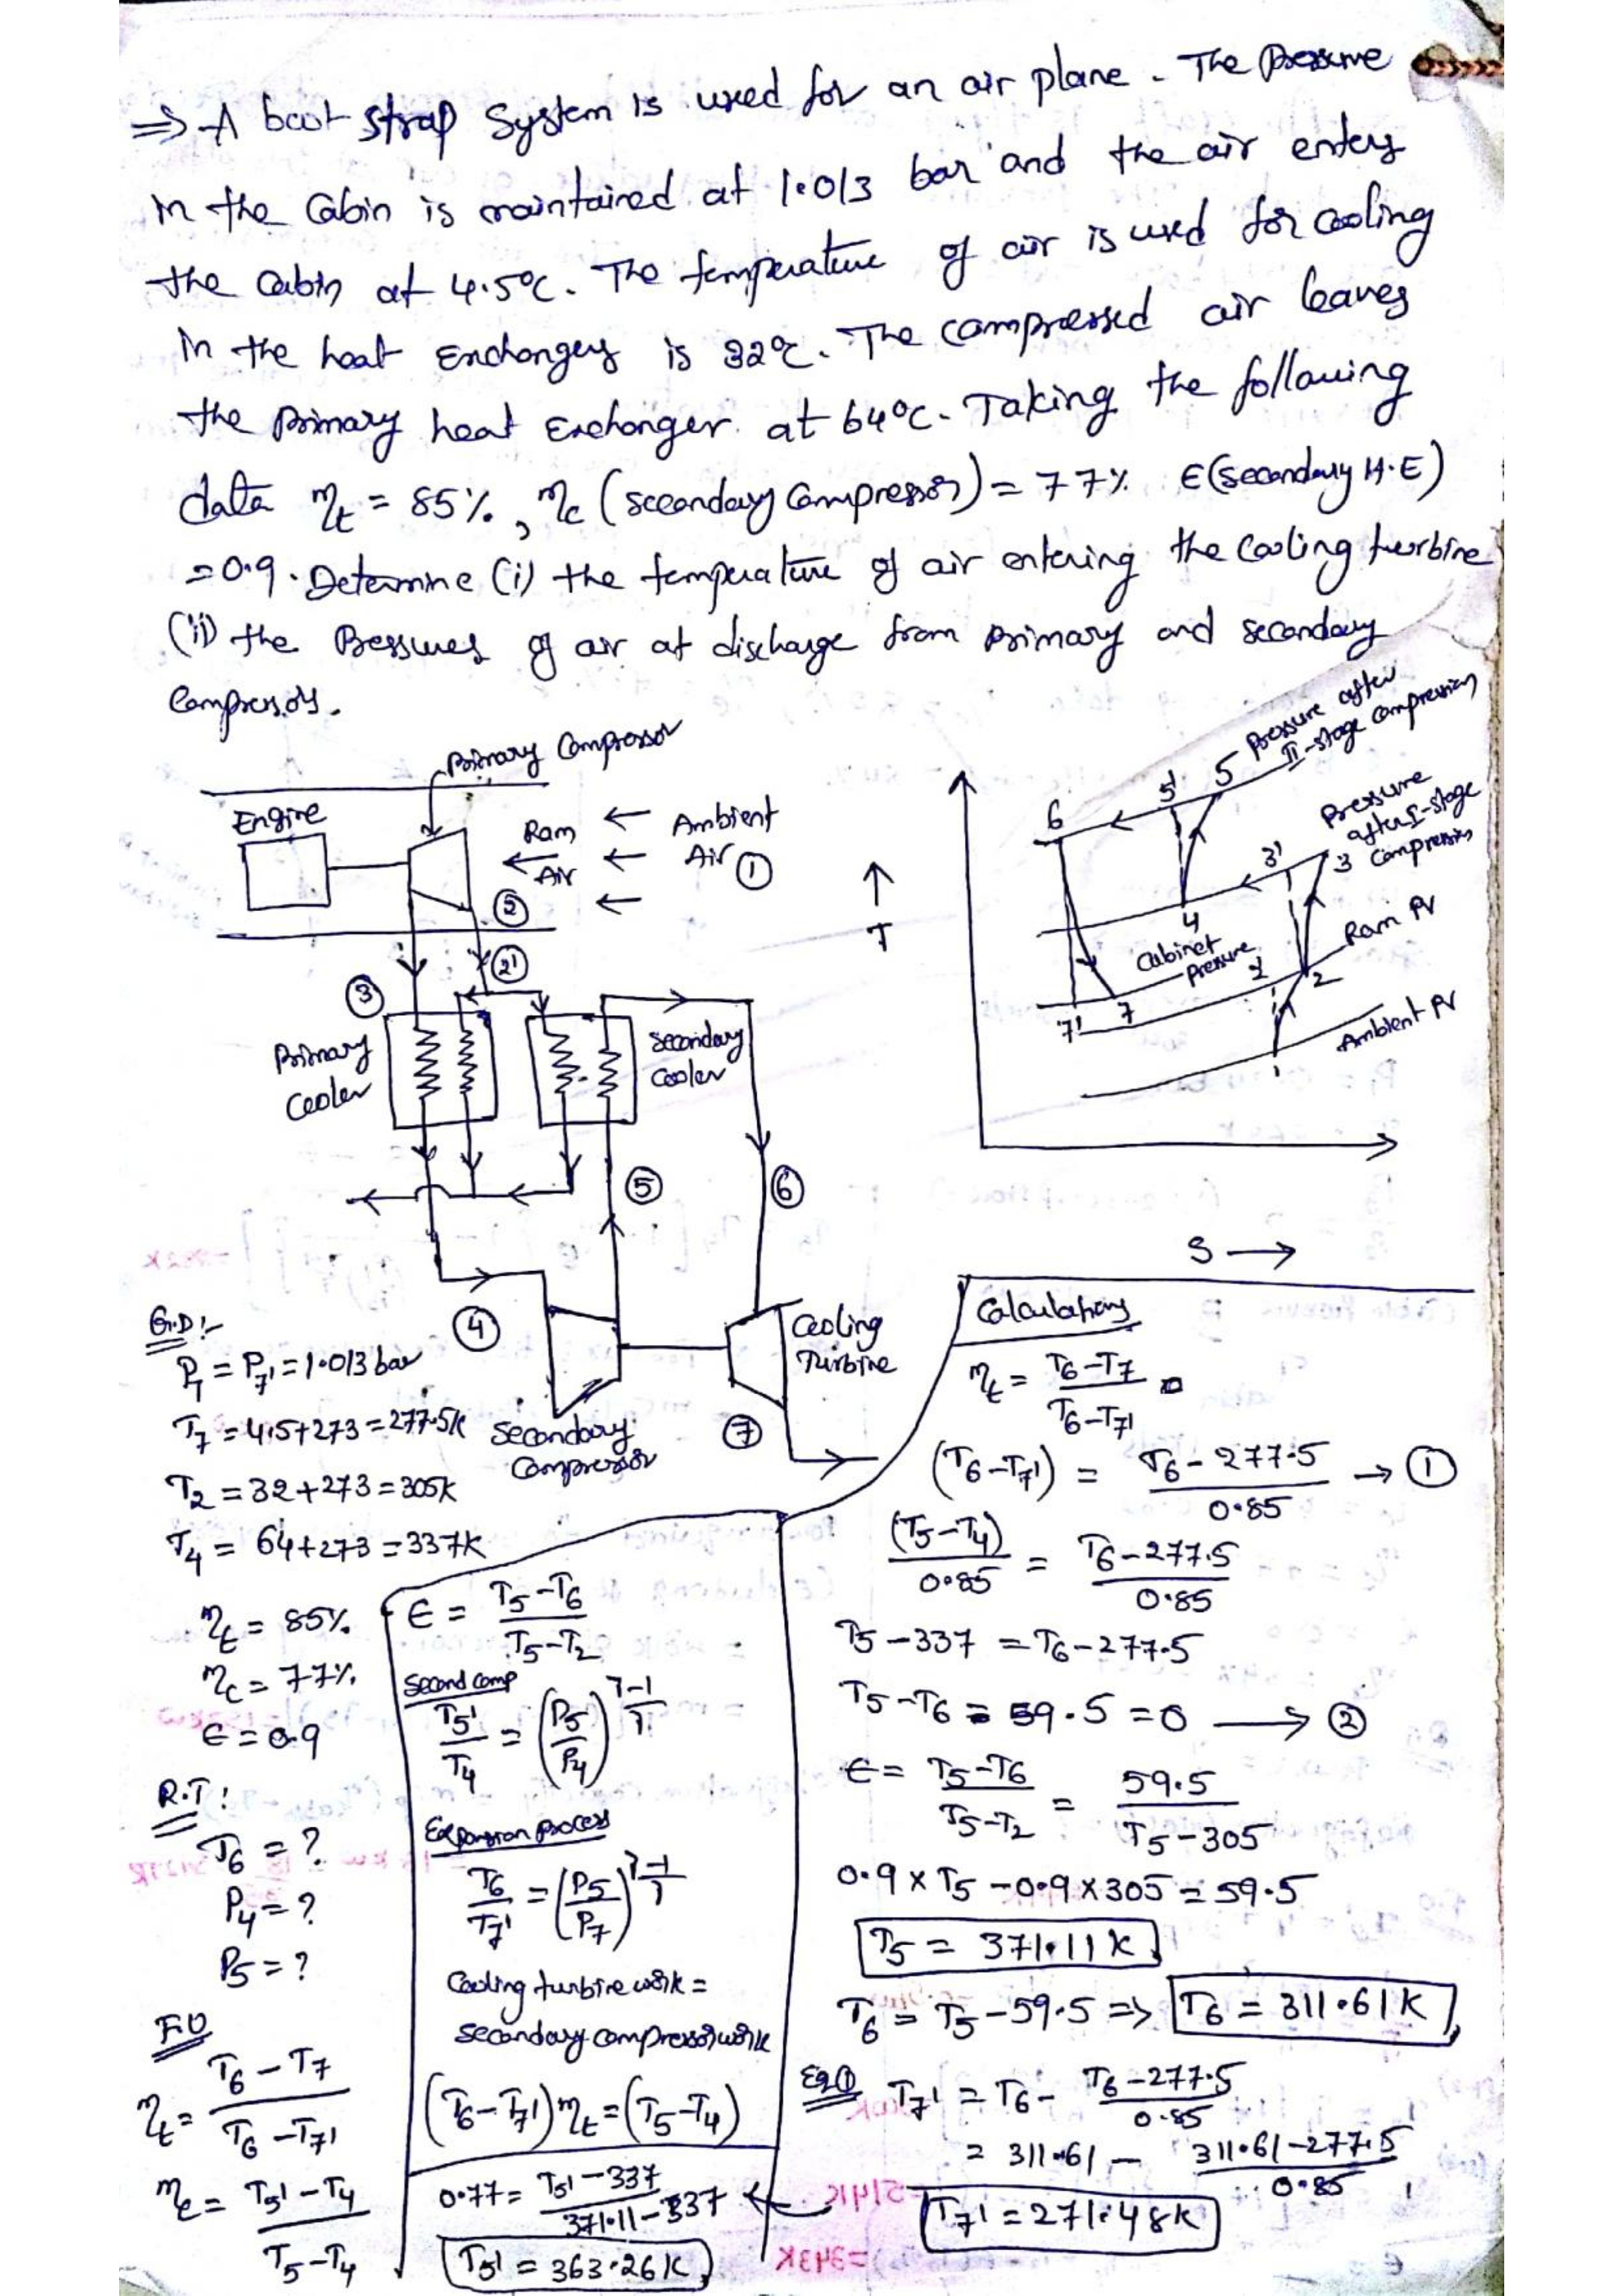 ⇒ A boot strap system is used for an air plane. The pressure
in the Cabin is maintained at 1.013 bar and the air enters
the cabin at 4.5°C. The temperature of air is used for cooling
in the heat Exchangers is 32°C. The compressed air leaves
the primary heat Exchanger at 64°C. Taking the following
data ηt = 85%, ηc (secondary compressor) = 77% ε(secondary H.E)
= 0.9. Determine (i) the temperature of air entering the cooling turbine
(ii) the Pressures of air at discharge from primary and secondary
Compressors.
Primary Compressor
Engine
Ram Air
Ambient Air ①
②
2'
③
Primary Cooler
Secondary Cooler
⑤
⑥
④
Secondary Compressor
Cooling Turbine
⑦
↑ T
S →
6 5' 5 Pressure after II-stage compression
3' 3 Pressure after I-stage compression
4
Cabinet pressure
2' 2 Ram Pr
7' 7
1' 1 Ambient Pr
G.D:-
P7 = P7' = 1.013 bar
T7 = 4.5+273 = 277.5K
T2 = 32+273 = 305K
T4 = 64+273 = 337K
ηt = 85%
ηc = 77%
ε = 0.9
R.T:
T6 = ?
P4 = ?
P5 = ?
F.U
ηt = (T6 - T7)/(T6 - T7')
ηc = (T5' - T4)/(T5 - T4)
ε = (T5 - T6)/(T5 - T2)
Second comp
T5'/T4 = (P5/P4)^(γ-1/γ)
Expansion process
T6/T7' = (P5/P7)^(γ-1/γ)
Cooling turbine work =
secondary compressor work
(T6 - T7')ηt = (T5 - T4)
0.77 = (T5' - 337)/(371.11 - 337)
T5' = 363.26K
Calculations
ηt = (T6 - T7)/(T6 - T7')
(T6 - T7') = (T6 - 277.5)/0.85 → ①
(T5 - T4)/0.85 = (T6 - 277.5)/0.85
T5 - 337 = T6 - 277.5
T5 - T6 - 59.5 = 0 → ②
ε = (T5 - T6)/(T5 - T2) = 59.5/(T5 - 305)
0.9 × T5 - 0.9 × 305 = 59.5
T5 = 371.11K
T6 = T5 - 59.5 ⇒ T6 = 311.61K
Eq① T7' = T6 - (T6 - 277.5)/0.85
= 311.61 - (311.61 - 277.5)/0.85
T7' = 271.48K